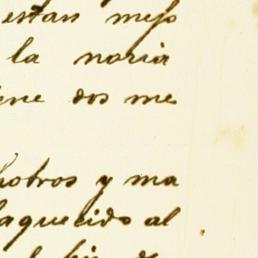 estan mejo
la noria
ene dos me
hotros y ma
laquecido al